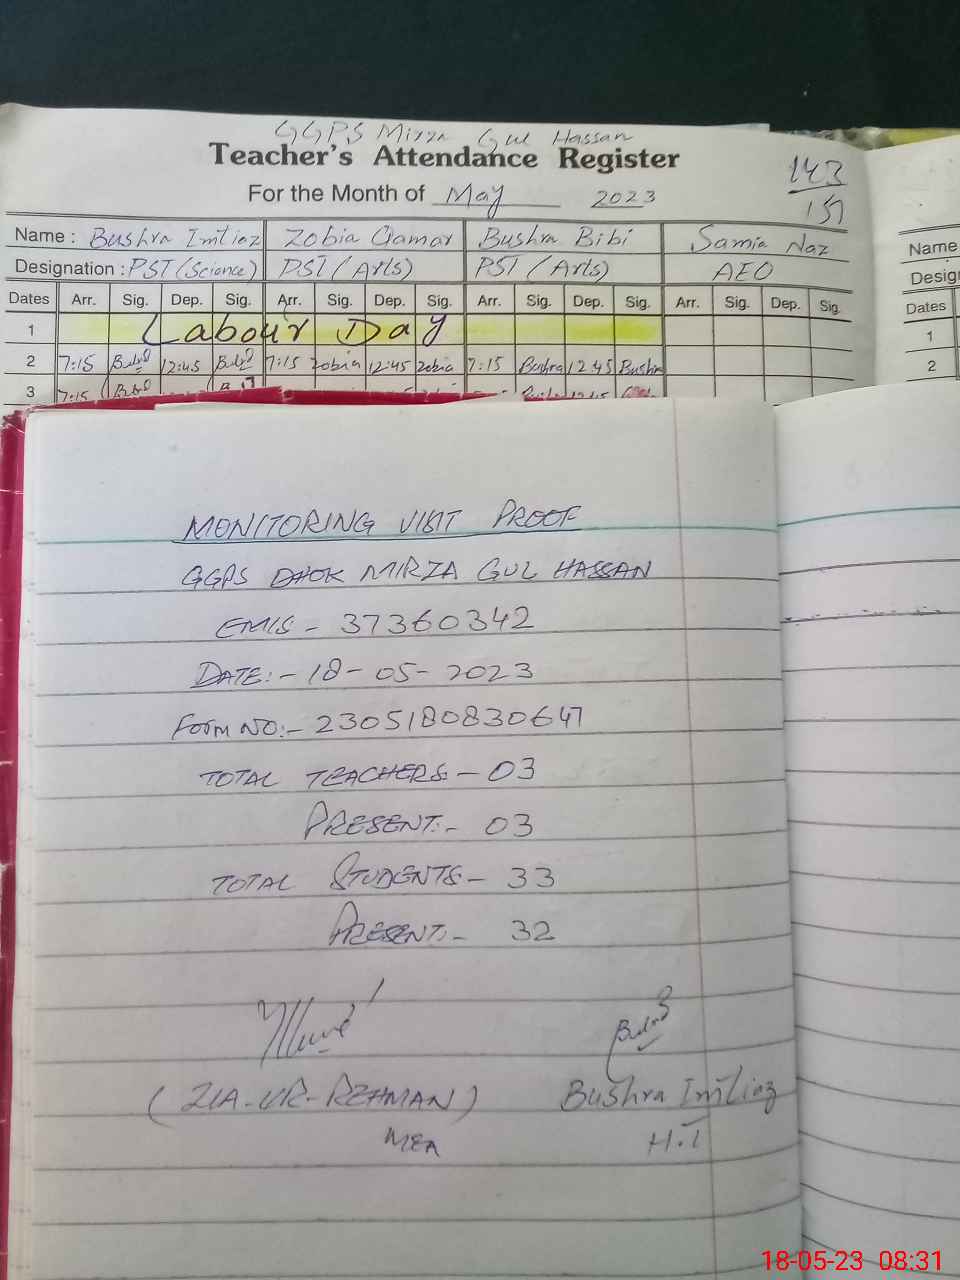 GGPS Mirza Gul Hassan
Teacher's Attendance Register
143
151
For the Month of May 2023
Name : Bushra Imtiaz Zobia Qamar Bushra Bibi Samia Naz
Designation : PST (Science) PST (Arts) PST (Arts) AEO
Dates Arr. Sig. Dep. Sig. Arr. Sig. Dep. Sig. Arr. Sig. Dep. Sig. Arr. Sig. Dep. Sig.
1 Labour Day
2 7:15 12:45 7:15 Zobia 12:45 Zobia 7:15 Bushra 12:45 Bushra
3 7:15
Name
Desig
Dates
1
2
MONITORING VISIT PROOF
GGPS DHOK MIRZA GUL HASSAN
EMIS - 37360342
DATE:- 18-05-2023
FORM NO:- 230518083064
TOTAL TEACHERS:- 03
PRESENT:- 03
TOTAL STUDENTS- 33
PRESENT:- 32
(ZIA-UR-REHMAN) Bushra Imtiaz
MEA H.T
18-05-23 08:31